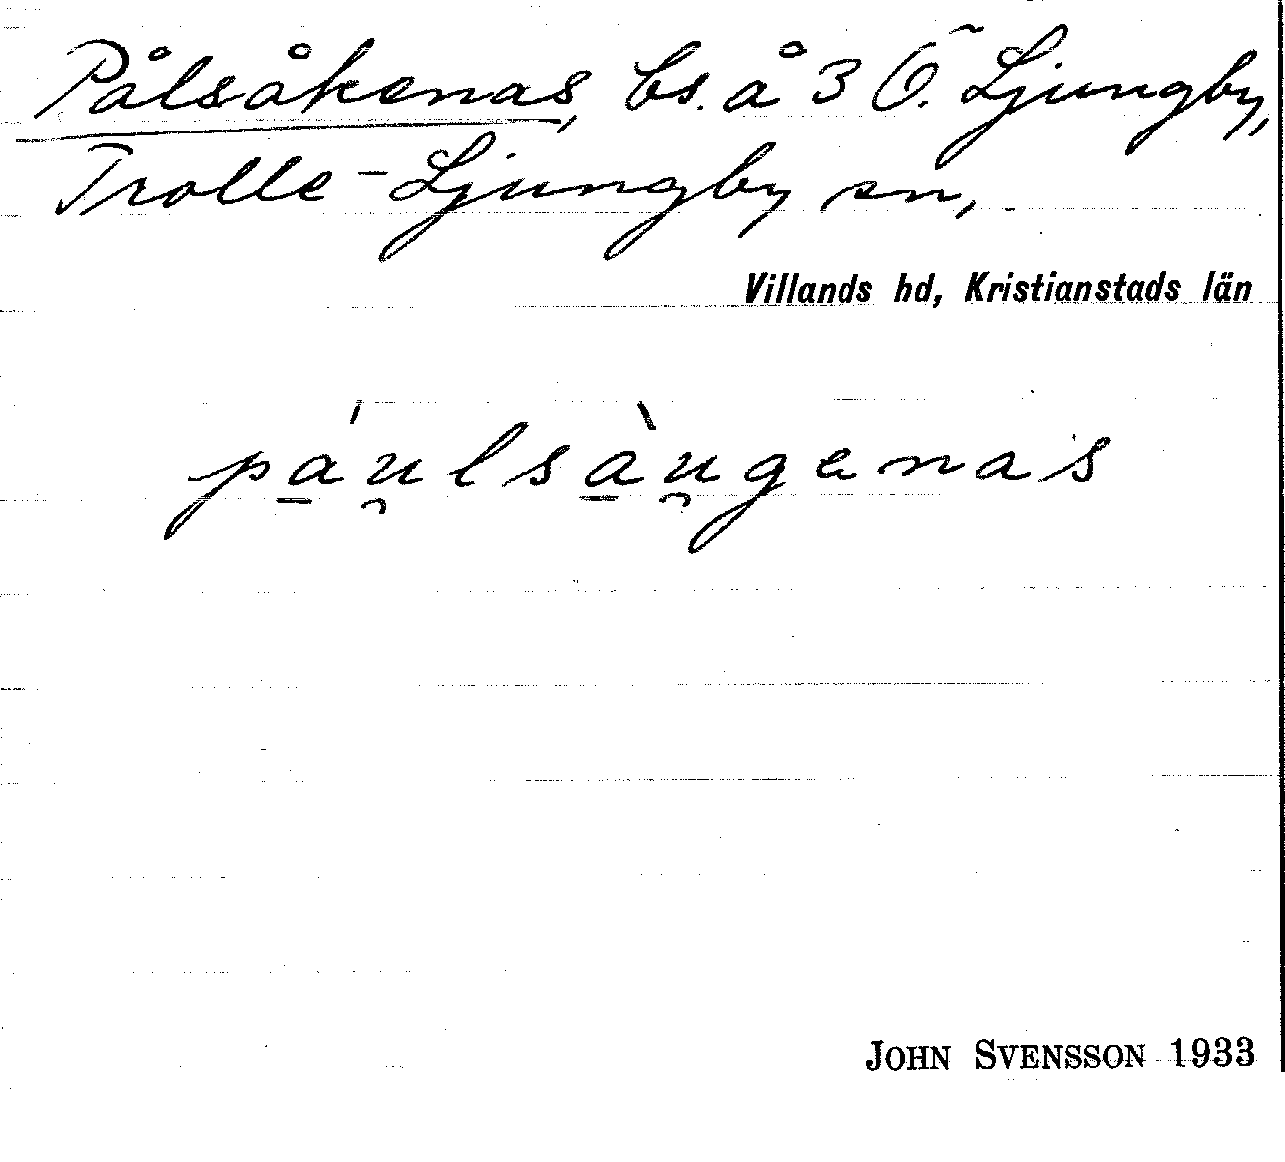 Pålsåkenas, bs. å 3 Ö. Ljungby,
Trolle-Ljungby sn,
Villands hd, Kristianstads län
pa̱´u̯lsa̱`u̯genas
JOHN SVENSSON 1933